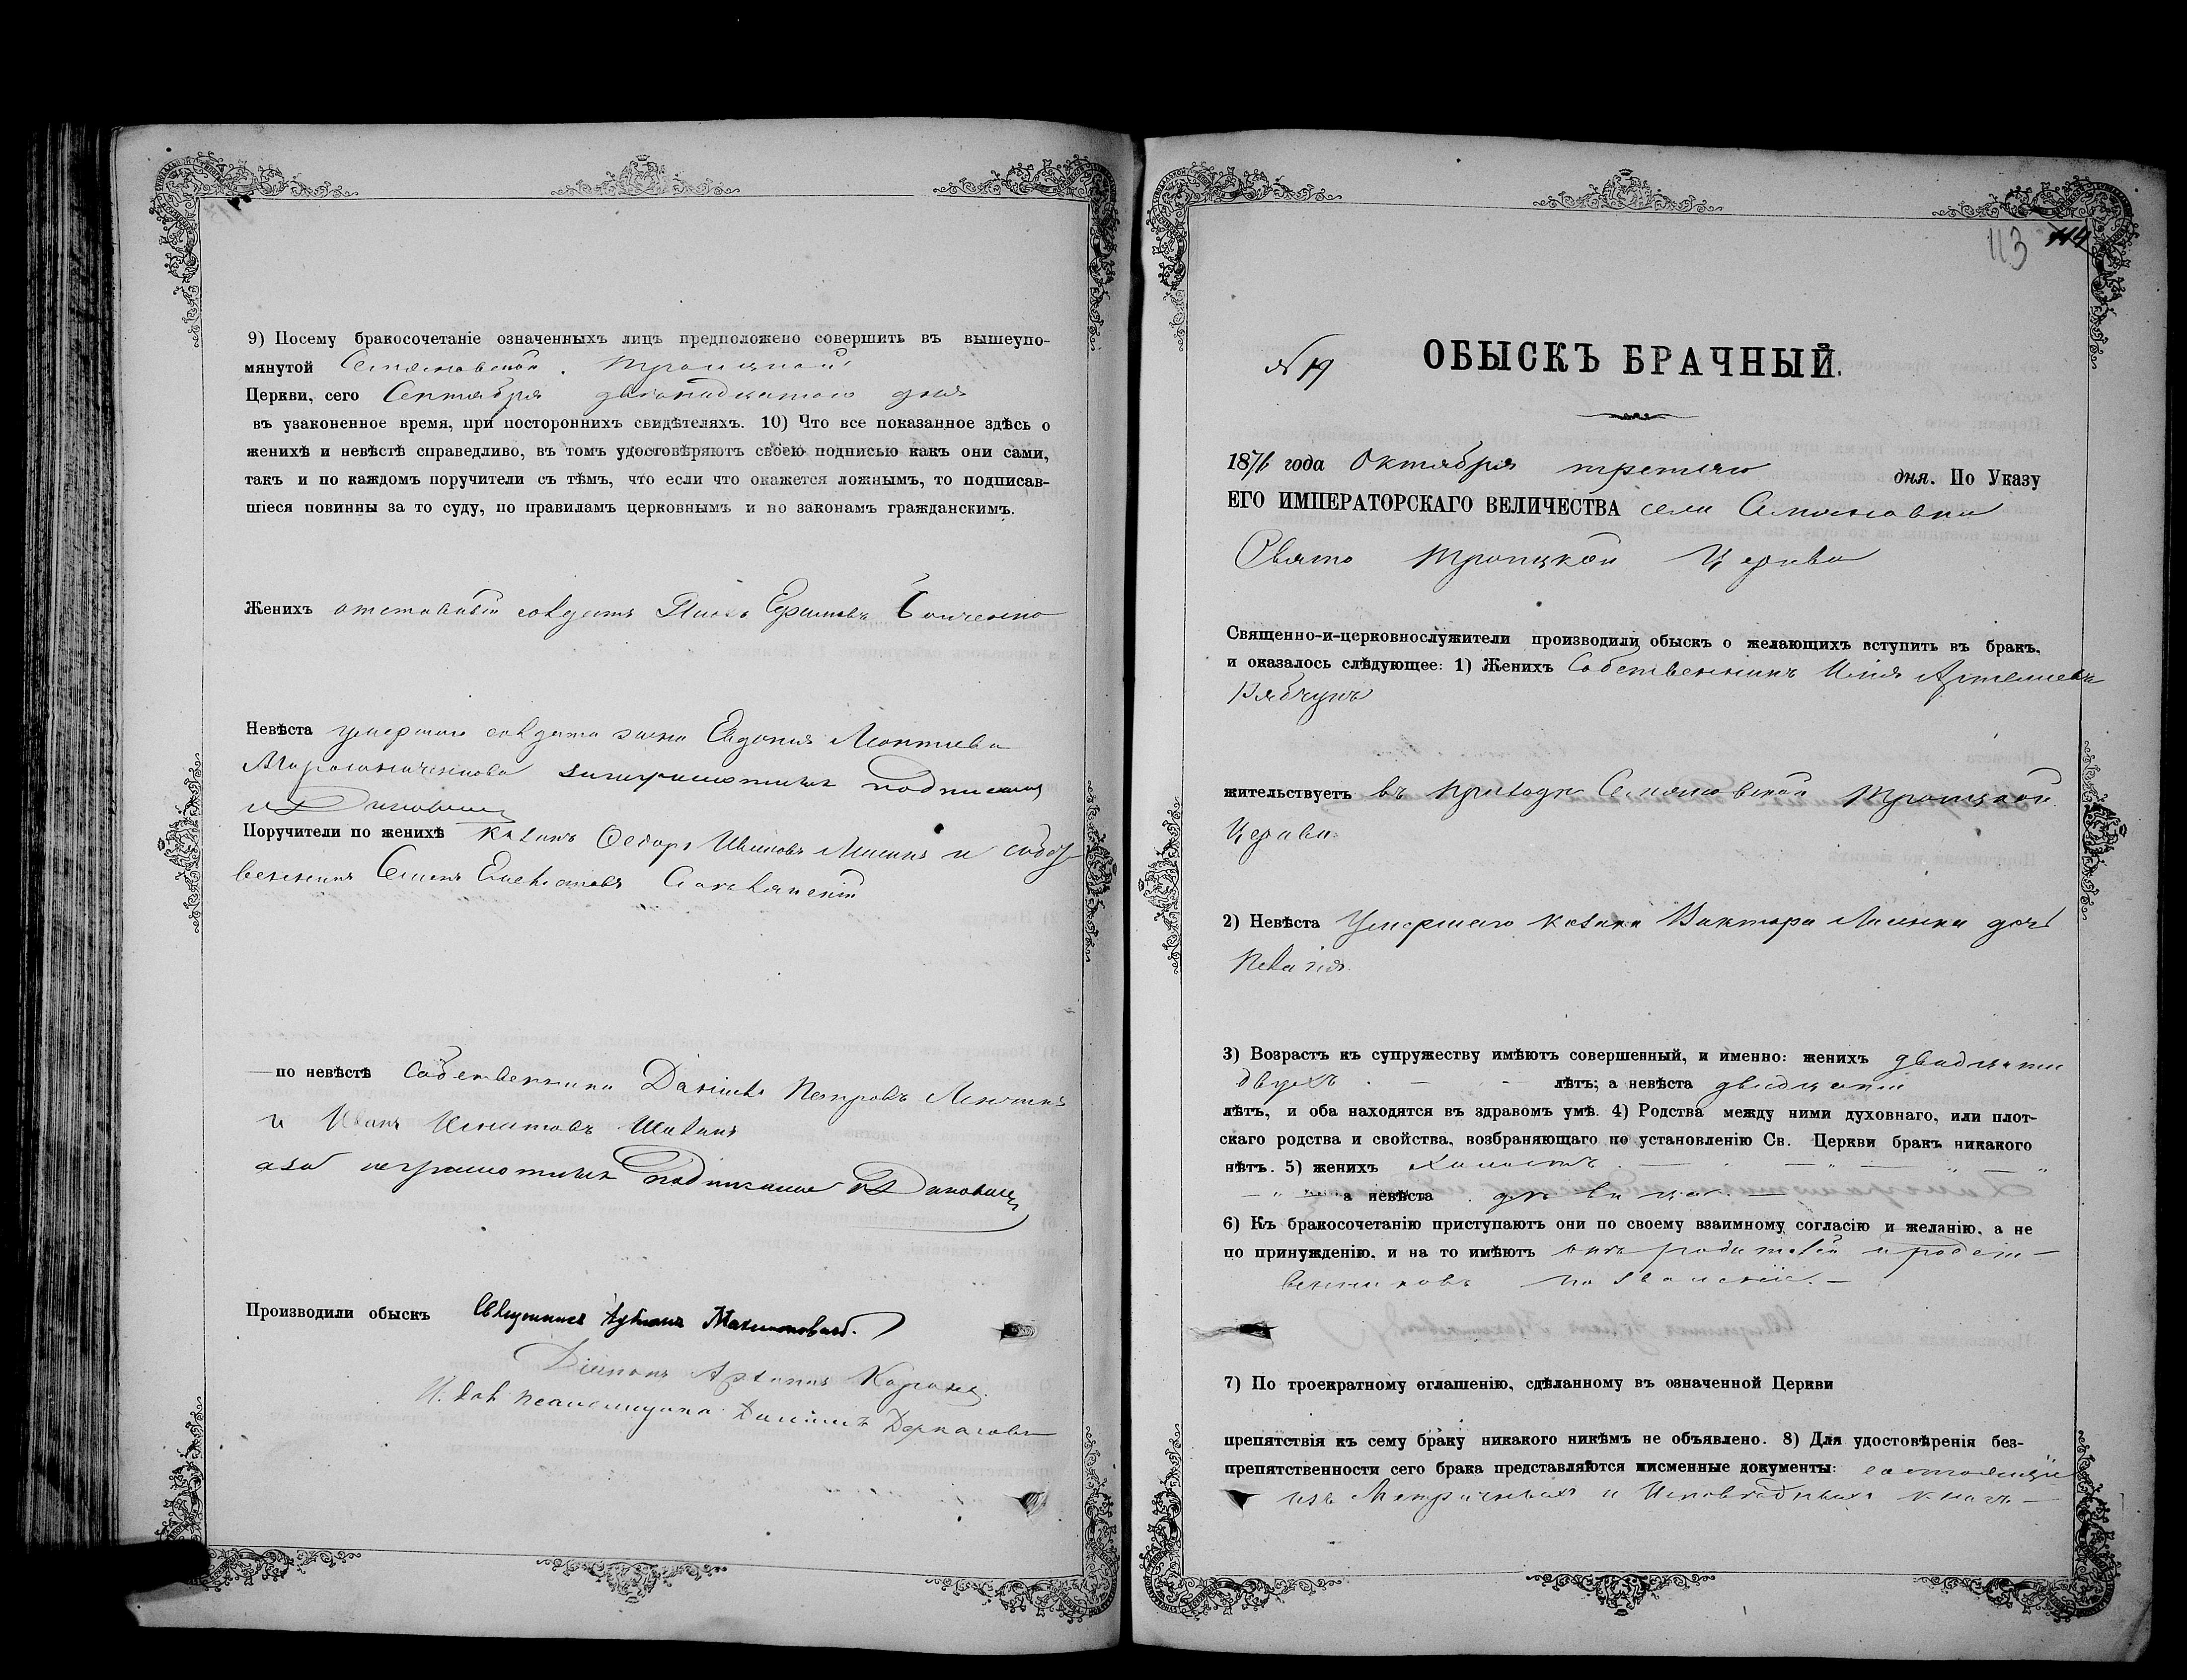 9) Посему бракосочетаніе означенныхъ лицъ предположено совершить въ вышеупо-
мянутой Семяновской Троицкой
Церкви, сего Сентября двенадцатого дня
въ узаконенное время, при постороннихъ свидѣтеляхъ. 10) Что все показанное здѣсь о
женихѣ и невѣстѣ справедливо, въ томъ удостовѣряютъ своею подписью какъ они сами,
такъ и по каждомъ поручители съ тѣмъ, что если что окажется ложнымъ, то подписав-
шіеся повинны за то суду, по правиламъ церковнымъ и по законамъ гражданскимъ.
Женихъ отставный солдатъ Ефимовъ
Невѣста умершаго солдата жена Евдокия Леонтиева
неграмотных подписался
Поручители по женихѣ козакъ Федоръ Ивановъ и собст
венникъ Семенъ
— по невѣстѣ собственники Данило Петровъ
и Иванъ Игнатовъ
а за неграмотных подписался
Производили обыскъ Священникъ
Діаконъ Корсунъ
И. дол. псаломщика
113 114
№ 19
ОБЫСКЪ БРАЧНЫЙ.
1876 года Октября третяго дня. По Указу
ЕГО ИМПЕРАТОРСКАГО ВЕЛИЧЕСТВА села Семяновки
Свято Троицкой Церкви
Священно-и-церковнослужители производили обыскъ о желающихъ вступить въ бракъ,
и оказалось слѣдующее: 1) Женихъ Собственникъ Илия Артемиевъ
Рябчунъ
жительствуетъ въ приходе Семяновской Троицкой
Церкви
2) Невѣста Умершаго козака Виктора Лисенка дочь
Пелагия
3) Возрастъ къ супружеству имѣютъ совершенный, и именно: женихъ двадцати
двухъ лѣтъ; а невѣста двадцати
лѣтъ, и оба находятся въ здравомъ умѣ. 4) Родства между ними духовнаго, или плот-
скаго родства и свойства, возбраняющаго по установленію Св. Церкви бракъ никакого
нѣтъ. 5) женихъ холостъ
а невѣста девица
6) Къ бракосочетанію приступаютъ они по своему взаимному согласію и желанію, а не
по принужденію, и на то имѣютъ отъ родителей и родст
венниковъ позволение.
7) По троекратному оглашенію, сдѣланному въ означенной Церкви
препятствія къ сему браку никакого никѣмъ не объявлено. 8) Для удостовѣренія без-
препятственности сего брака представляются писменные документы: состоящіе
изъ Метричныхъ и Исповѣдныхъ книгъ